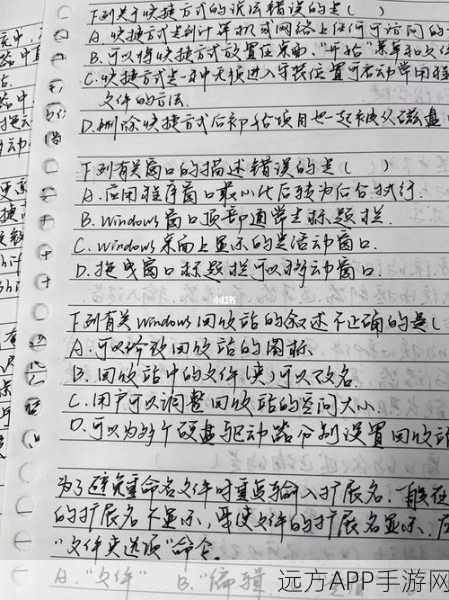 下列关于快捷方式的说法错误的是(  )
A. 快捷方式是到计算机或网络上任何可访问的
B. 可以将快捷方式放置在桌面、"开始"菜单和文件
C. 快捷方式是一种无须进入安装位置即可启动常用程
文件的方法
D. 删除快捷方式后初始项目也一起被从磁盘
下列有关窗口的描述错误的是(  )
A. 应用程序窗口最小化后转为后台执行.
B. Windows 窗口顶部通常是标题栏.
C. Windows 桌面上显示的是活动窗口.
D. 拖曳窗口标题栏可以移动窗口.
小红书
下列有关Windows回收站的叙述不正确的是(
A. 可以修改回收站的图标
B. 回收站中的文件(夹)可以改名.
C. 用户可以调整回收站的空间大小.
D. 可以为每个硬盘驱动器分别设置回收站
为了避免重命名文件时重复输入扩展名,
的扩展名不显示,要使文件的扩展名显示,应
"文件夹选项"命令.
A. "文件"  B. "编辑
远方APP手游网